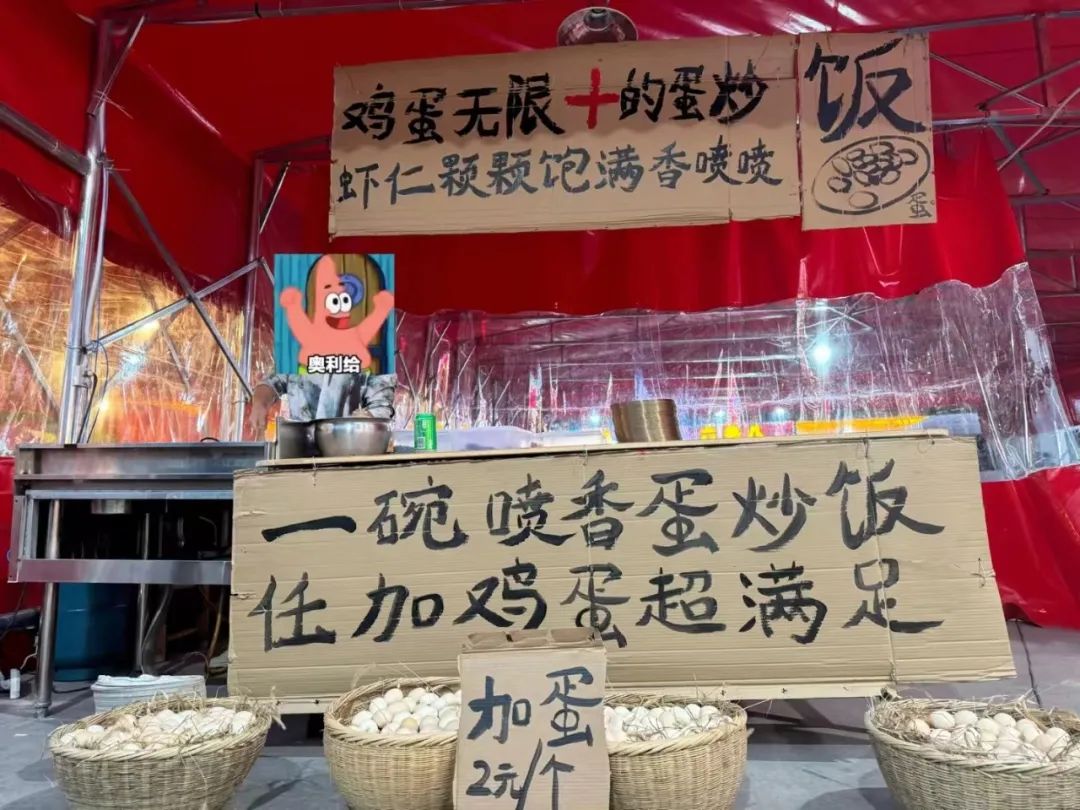 鸡蛋无限+的蛋炒饭
虾仁颗颗饱满香喷喷
蛋
奥利给
一碗喷香蛋炒饭
任加鸡蛋超满足
加蛋
2元/个